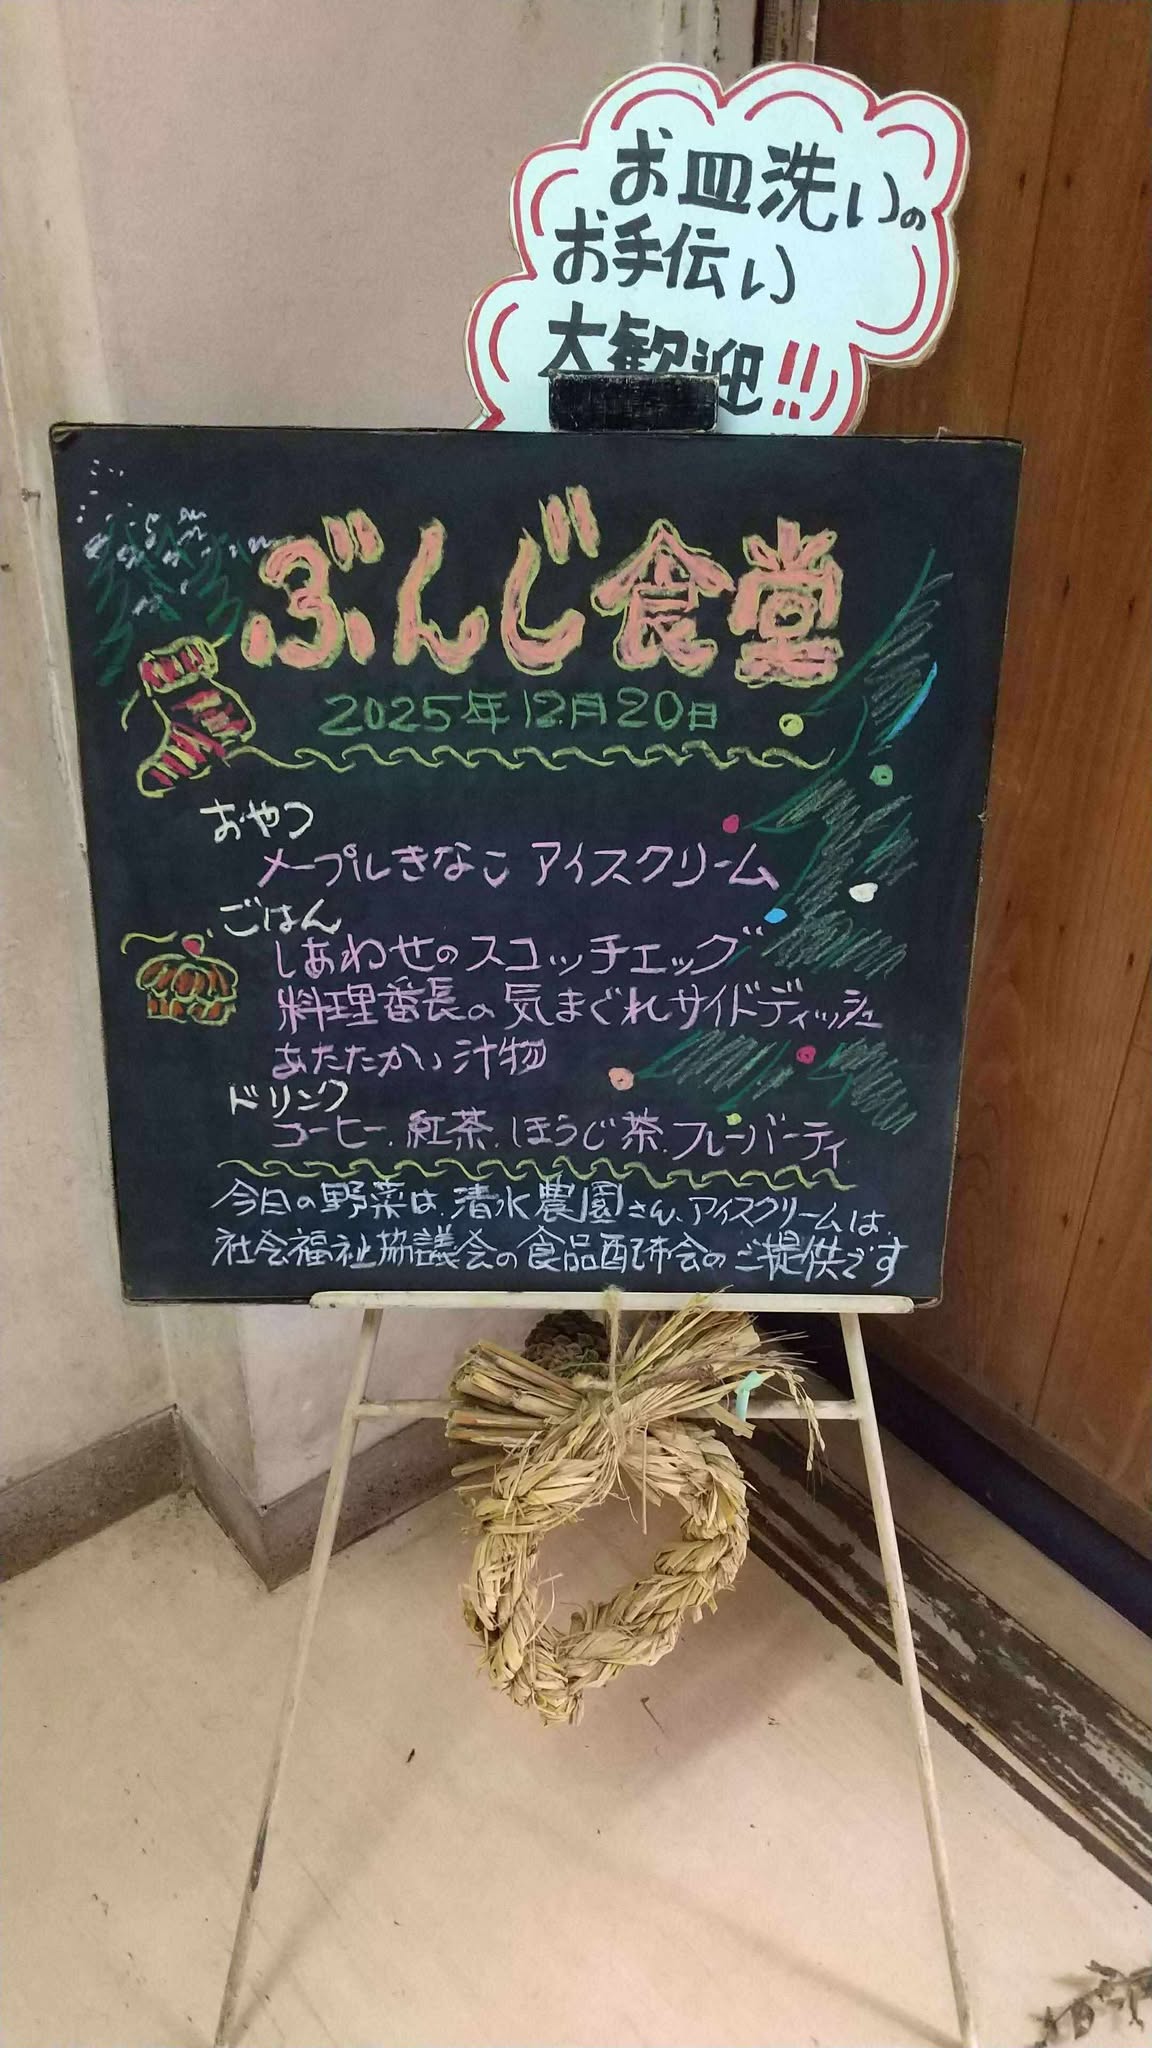 お皿洗いの
お手伝い
大歓迎!!
ぶんじ食堂
2025年12月20日
おやつ
メープルきなこ アイスクリーム
ごはん
しあわせのスコッチエッグ
料理番長の気まぐれサイドディッシュ
あたたかい汁物
ドリンク
コーヒー、紅茶、ほうじ茶、フレーバーティ
今日の野菜は、清水農園さん、アイスクリームは、
社会福祉協議会の食品配布会のご提供です